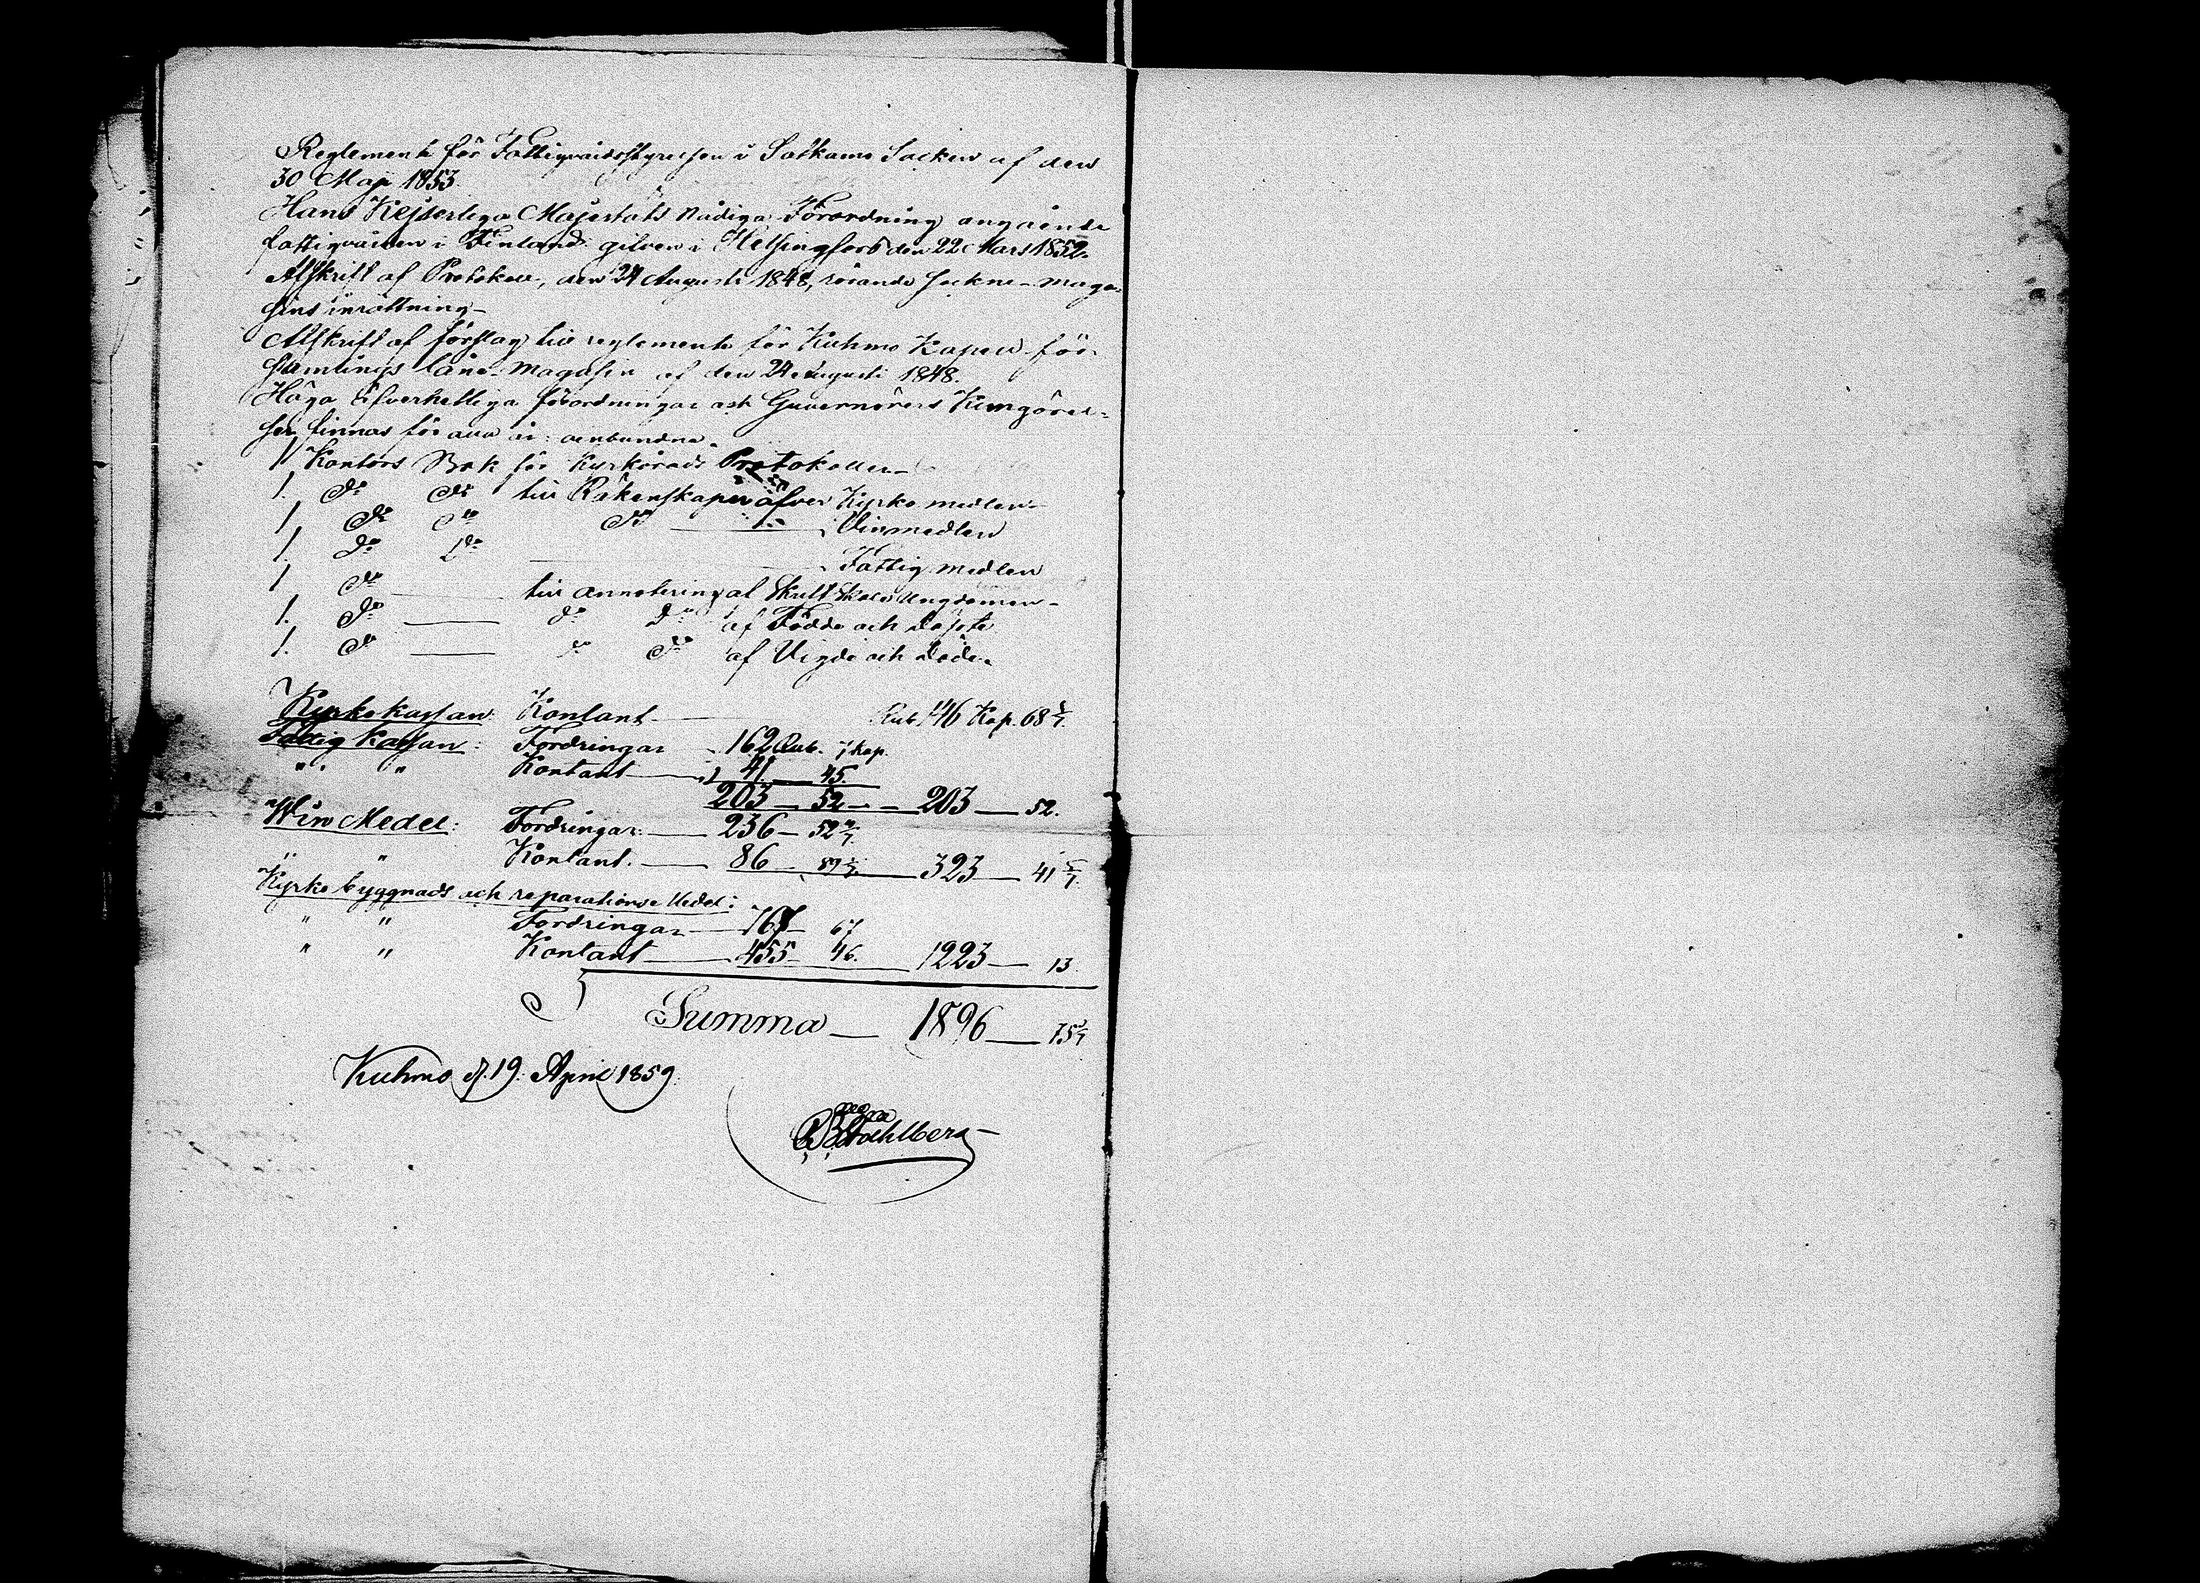 Reglemente för Fattigvårdsstyrelsen i Sotkamo Socken af den
30 Maji 1853.
Hans Kejserliga Majestäts Nådiga Förordning angående
fattigvården i Finland gifven i Helsingfors den 22 Mars 1852.
Afskrift af Protokoll, den 24 Augusti 1848, rörande Sockne-maga-
sins inrättning.
Afskrift af förslag till reglemente för Kuhmo Kapell för-
samlings låne-Magasin af den 24 Augusti 1848.
Höga Öfverhetliga förordningar och Guvernörens Kungörel-
ser finnas för alla år: oenbundna.
1, Kontors Bok för Kyrkoråds Protokoller
1. do do till Räkenskaper öfver Kyrko medlen
1, do do do Vinmedlen
1. do do Fattig medlen
1 do till annotering af Skrift Skole Ungdomen
1. do do do af Födde och Döpte
1. do do do af Vigde och Döde.
Kyrko Kassan: Kontant Rub 146 Kop. 68 5/7.
Fattig Kassan: Fordringar 162 Rub. 7 kop.
" " Kontant 41 45.
203 52 203 52.
Win Medel: Fordringar 236 52 4/7
" " Kontant. 86 89 1/7 323 41 5/7.
Kyrko byggnads och reparations Medel:
" " Fordringar 767 67
" " Kontant 455 46. 1223 13.
Summa 1896 75 3/7
Kuhmo d. 19. April 1859.
Stahlberg